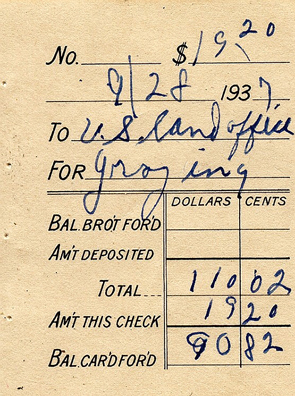 No. $19.20
9/28 1937
To U.S. land office
For Grazing
DOLLARS CENTS
BAL. BRO'T FOR'D
AM'T DEPOSITED
TOTAL 110 02
AM'T THIS CHECK 19 20
BAL. CAR'D FOR'D 90 82